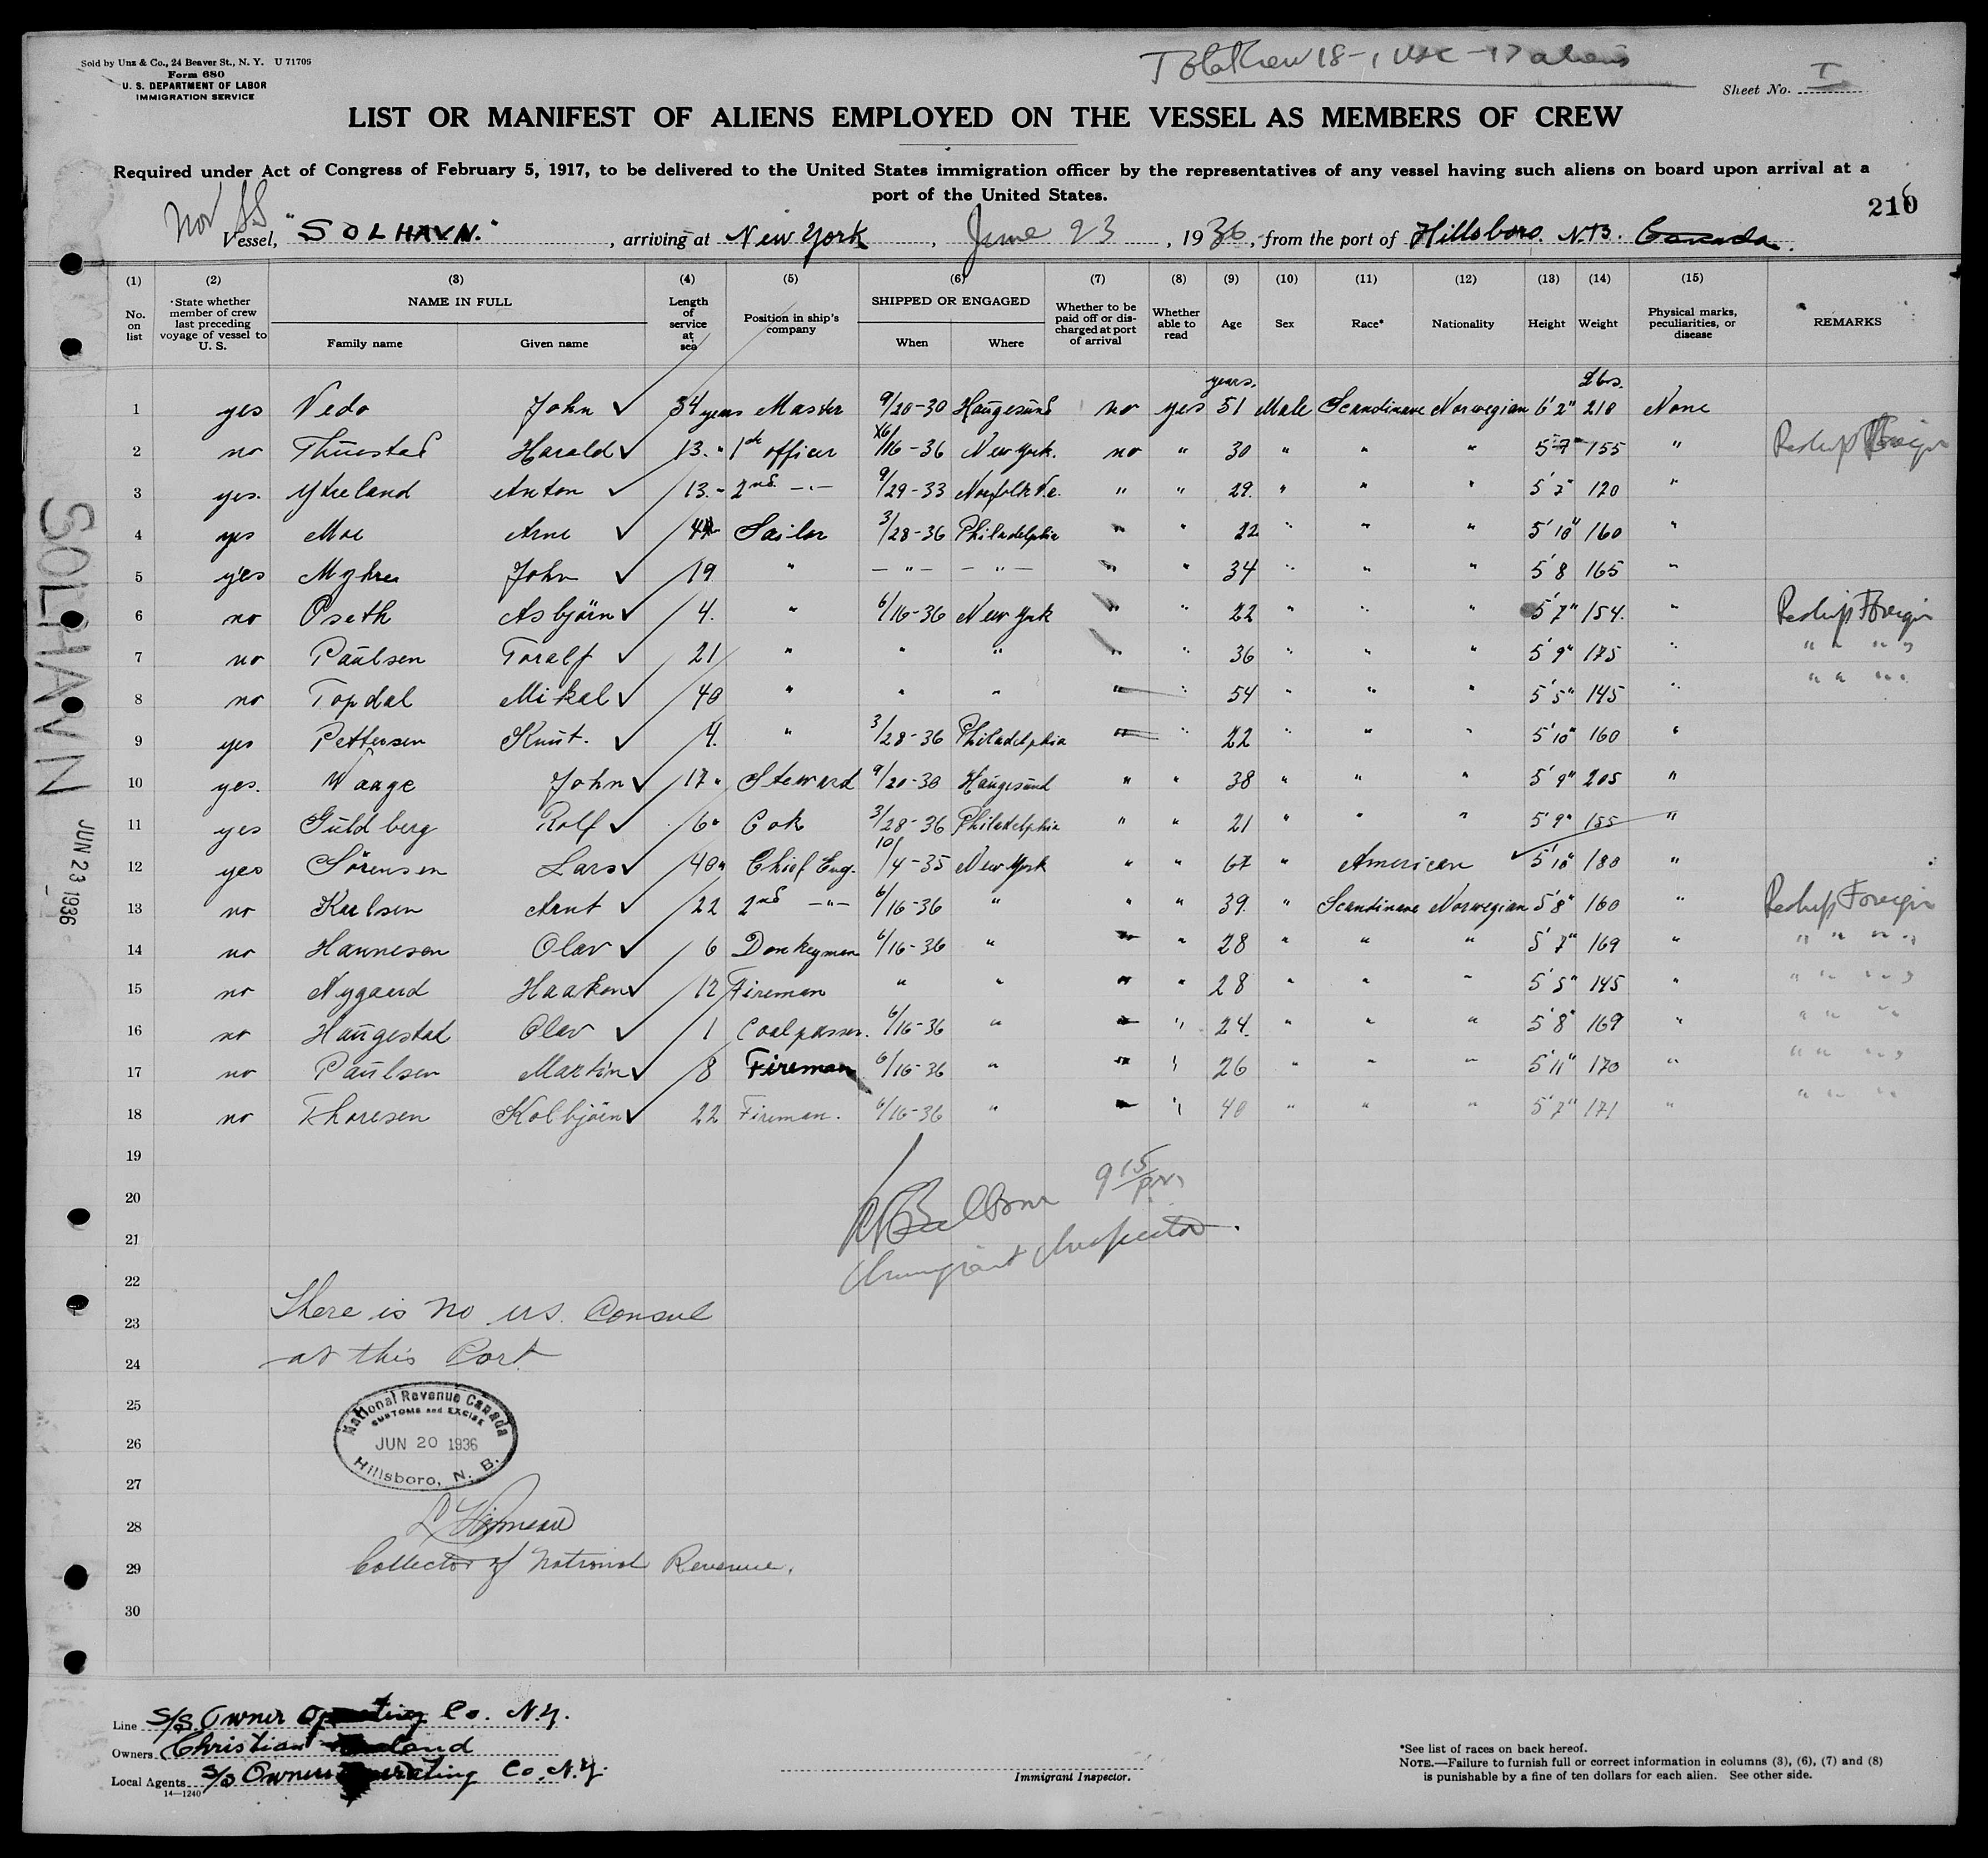 Sold by Unz & Co., 24 Beaver St., N. Y. U 71705
Form 680
U. S. DEPARTMENT OF LABOR
IMMIGRATION SERVICE
Total Crew 18 - 1 USC - 17 aliens
Sheet No. I
LIST OR MANIFEST OF ALIENS EMPLOYED ON THE VESSEL AS MEMBERS OF CREW
Required under Act of Congress of February 5, 1917, to be delivered to the United States immigration officer by the representatives of any vessel having such aliens on board upon arrival at a
port of the United States.
210
Nor SS
Vessel, "SOLHAVN." , arriving at New York , June 23 , 1936, from the port of Hillsboro. N.B. Canada.
(1) (2) (3) (4) (5) (6) (7) (8) (9) (10) (11) (12) (13) (14) (15)
No. on list
State whether member of crew last preceding voyage of vessel to U. S.
NAME IN FULL
Family name Given name
Length of service at sea
Position in ship's company
SHIPPED OR ENGAGED
When Where
Whether to be paid off or discharged at port of arrival
Whether able to read
Age
Sex
Race*
Nationality
Height
Weight
Physical marks, peculiarities, or disease
REMARKS
years. Lbs.
1 yes Vedo John ✓ 34 years Master 9/20-30 Haugesund no yes 51 Male Scandinave Norwegian 6'2" 210 None
2 no Thuestad Harald ✓ 13 " 1st officer 6/16-36 New York. no " 30 " " " 5'7" 155 " Reship Foreign
3 yes. Ytreland Anton ✓ 13 " 2nd -"- 9/29-33 Norfolk Va. " " 29. " " " 5'7" 120 "
4 yes Moe Arne ✓ 4 Sailor 3/28-36 Philadelphia " " 22 " " " 5'10" 160 "
5 yes Myhre John ✓ 19 " -"- -"- " " 34 " " " 5'8 165 "
6 no Oseth Asbjörn ✓ 4. " 6/16-36 New York " " 22 " " " 5'7" 154. " Reship Foreign
7 no Paulsen Toralf ✓ 21 " " " " " 36 " " " 5'9" 175 " " " " "
8 no Topdal Mikal ✓ 40 " " " " " 54 " " " 5'5" 145 " " " " "
9 yes Pettersen Knut. ✓ 4. " 3/28-36 Philadelphia " " 22 " " " 5'10" 160 "
10 yes. Waage John ✓ 17 " Steward 9/20-30 Haugesund " " 38 " " " 5'9" 205 "
11 yes Guldberg Rolf ✓ 6 " Cok 3/28-36 Philadelphia " " 21 " " " 5'9" 155 "
12 yes Sörensen Lars ✓ 40 " Chief Eng. 10/4-35 New York " " 67 " American ✓ 5'10" 180 "
13 no Karlsen Arnt ✓ 22 2nd -"- 6/16-36 " " " 39. " Scandinave Norwegian 5'8" 160 " Reship Foreign
14 no Hannesen Olav ✓ 6 Donkeyman 6/16-36 " " " 28 " " " 5'7" 169 " " " " "
15 no Nygaard Haakon ✓ 12 Fireman " " " " 28 " " " 5'5" 145 " " " " "
16 no Haugestad Olav ✓ 1 Coalpasser. 6/16-36 " " " 24. " " " 5'8" 169 " " " " "
17 no Paulsen Martin ✓ 8 Fireman 6/16-36 " " " 26 " " " 5'11" 170 " " " " "
18 no Thoresen Kolbjörn ✓ 22 Fireman. 6/16-36 " " " 40 " " " 5'7" 171 " " " " "
19
20
21
22
23
24
25
26
27
28
29
30
9 15 pm
Immigrant Inspector.
There is no U.S. Consul
at this Port
National Revenue Canada
CUSTOMS and EXCISE
JUN 20 1936
Hillsboro, N. B.
Collector of National Revenue.
SOLHAVN
JUN 23 1936
Line S/S. Owner Operating Co. N.Y.
Owners Christian
Local Agents S/S Owners Operating Co. N.Y.
14—1240
Immigrant Inspector.
*See list of races on back hereof.
NOTE.—Failure to furnish full or correct information in columns (3), (6), (7) and (8)
is punishable by a fine of ten dollars for each alien. See other side.